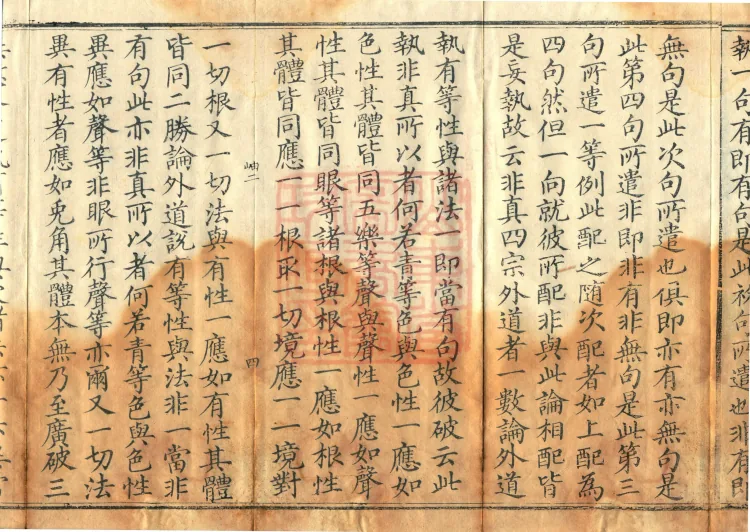 執一句有即有句是此初句所遣也非有即
無句是此次句所遣也俱即亦有亦無句是
此第四句所遣非即非有非無句是此第三
句所遣一等例此配之隨次配者如上配為
四句然但一向就彼所配非與此論相配皆
是妄執故云非真四宗外道者一數論外道
執有等性與諸法一即當有句故彼破云此
執非真所以者何若青等色與色性一應如
色性其體皆同五樂等聲與聲性一應如聲
性其體皆同眼等諸根與根性一應如根性
其體皆同應一一根取一切境應一一境對
岫二
四
一切根又一切法與有性一應如有性其體
皆同二勝論外道說有等性與法非一當非
有句此亦非真所以者何若青等色與色性
異應如聲等非眼所行聲等亦爾又一切法
異有性者應如兎角其體本無乃至廣破三